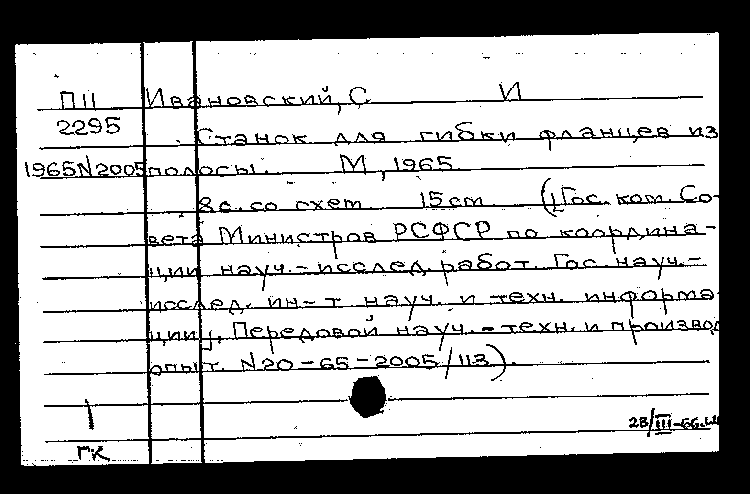 П11 Ивановский, С И
2295 Станок для гибки фланцев из
1965N2005 полосы. М, 1965.
8с. со схем. 15см. (Гос. ком. Со-
вета Министров РСФСР по координа-
ции науч.-исслед. работ. Гос. науч.-
исслед. ин-т науч. и техн. информа
ции). Передовой науч.-техн. и производ
опыт. N20-65-2005/113).
1
28/III-66.
ГК